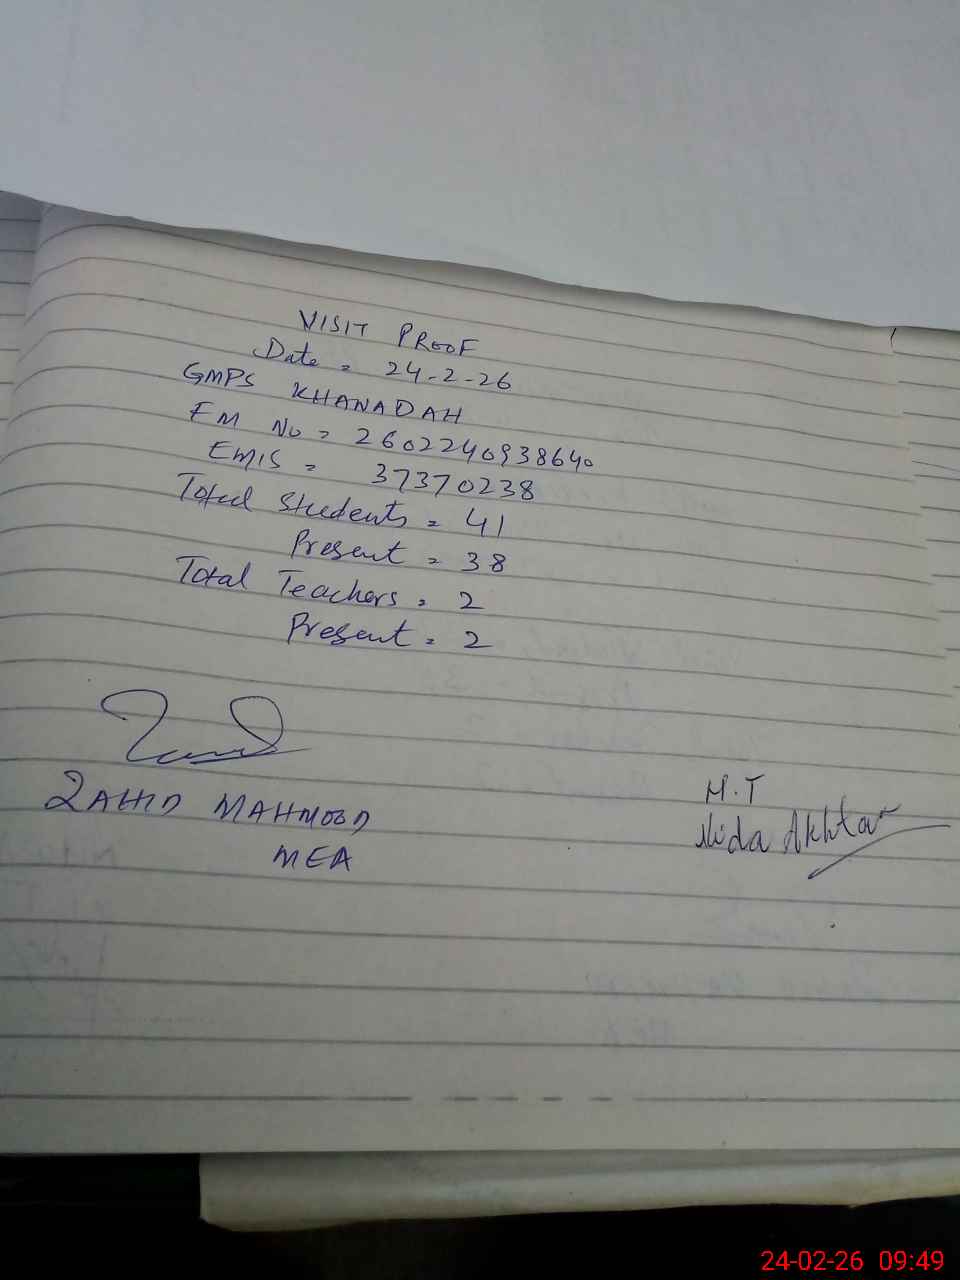 VISIT PROOF
Date = 24-2-26
GMPS KHANADAH
EM No = 2602240938640
EMIS = 37370238
Total Students = 41
Present = 38
Total Teachers = 2
Present = 2
ZAHID MAHMOOD
MEA
H.T
Nida Akhtar
24-02-26 09:49